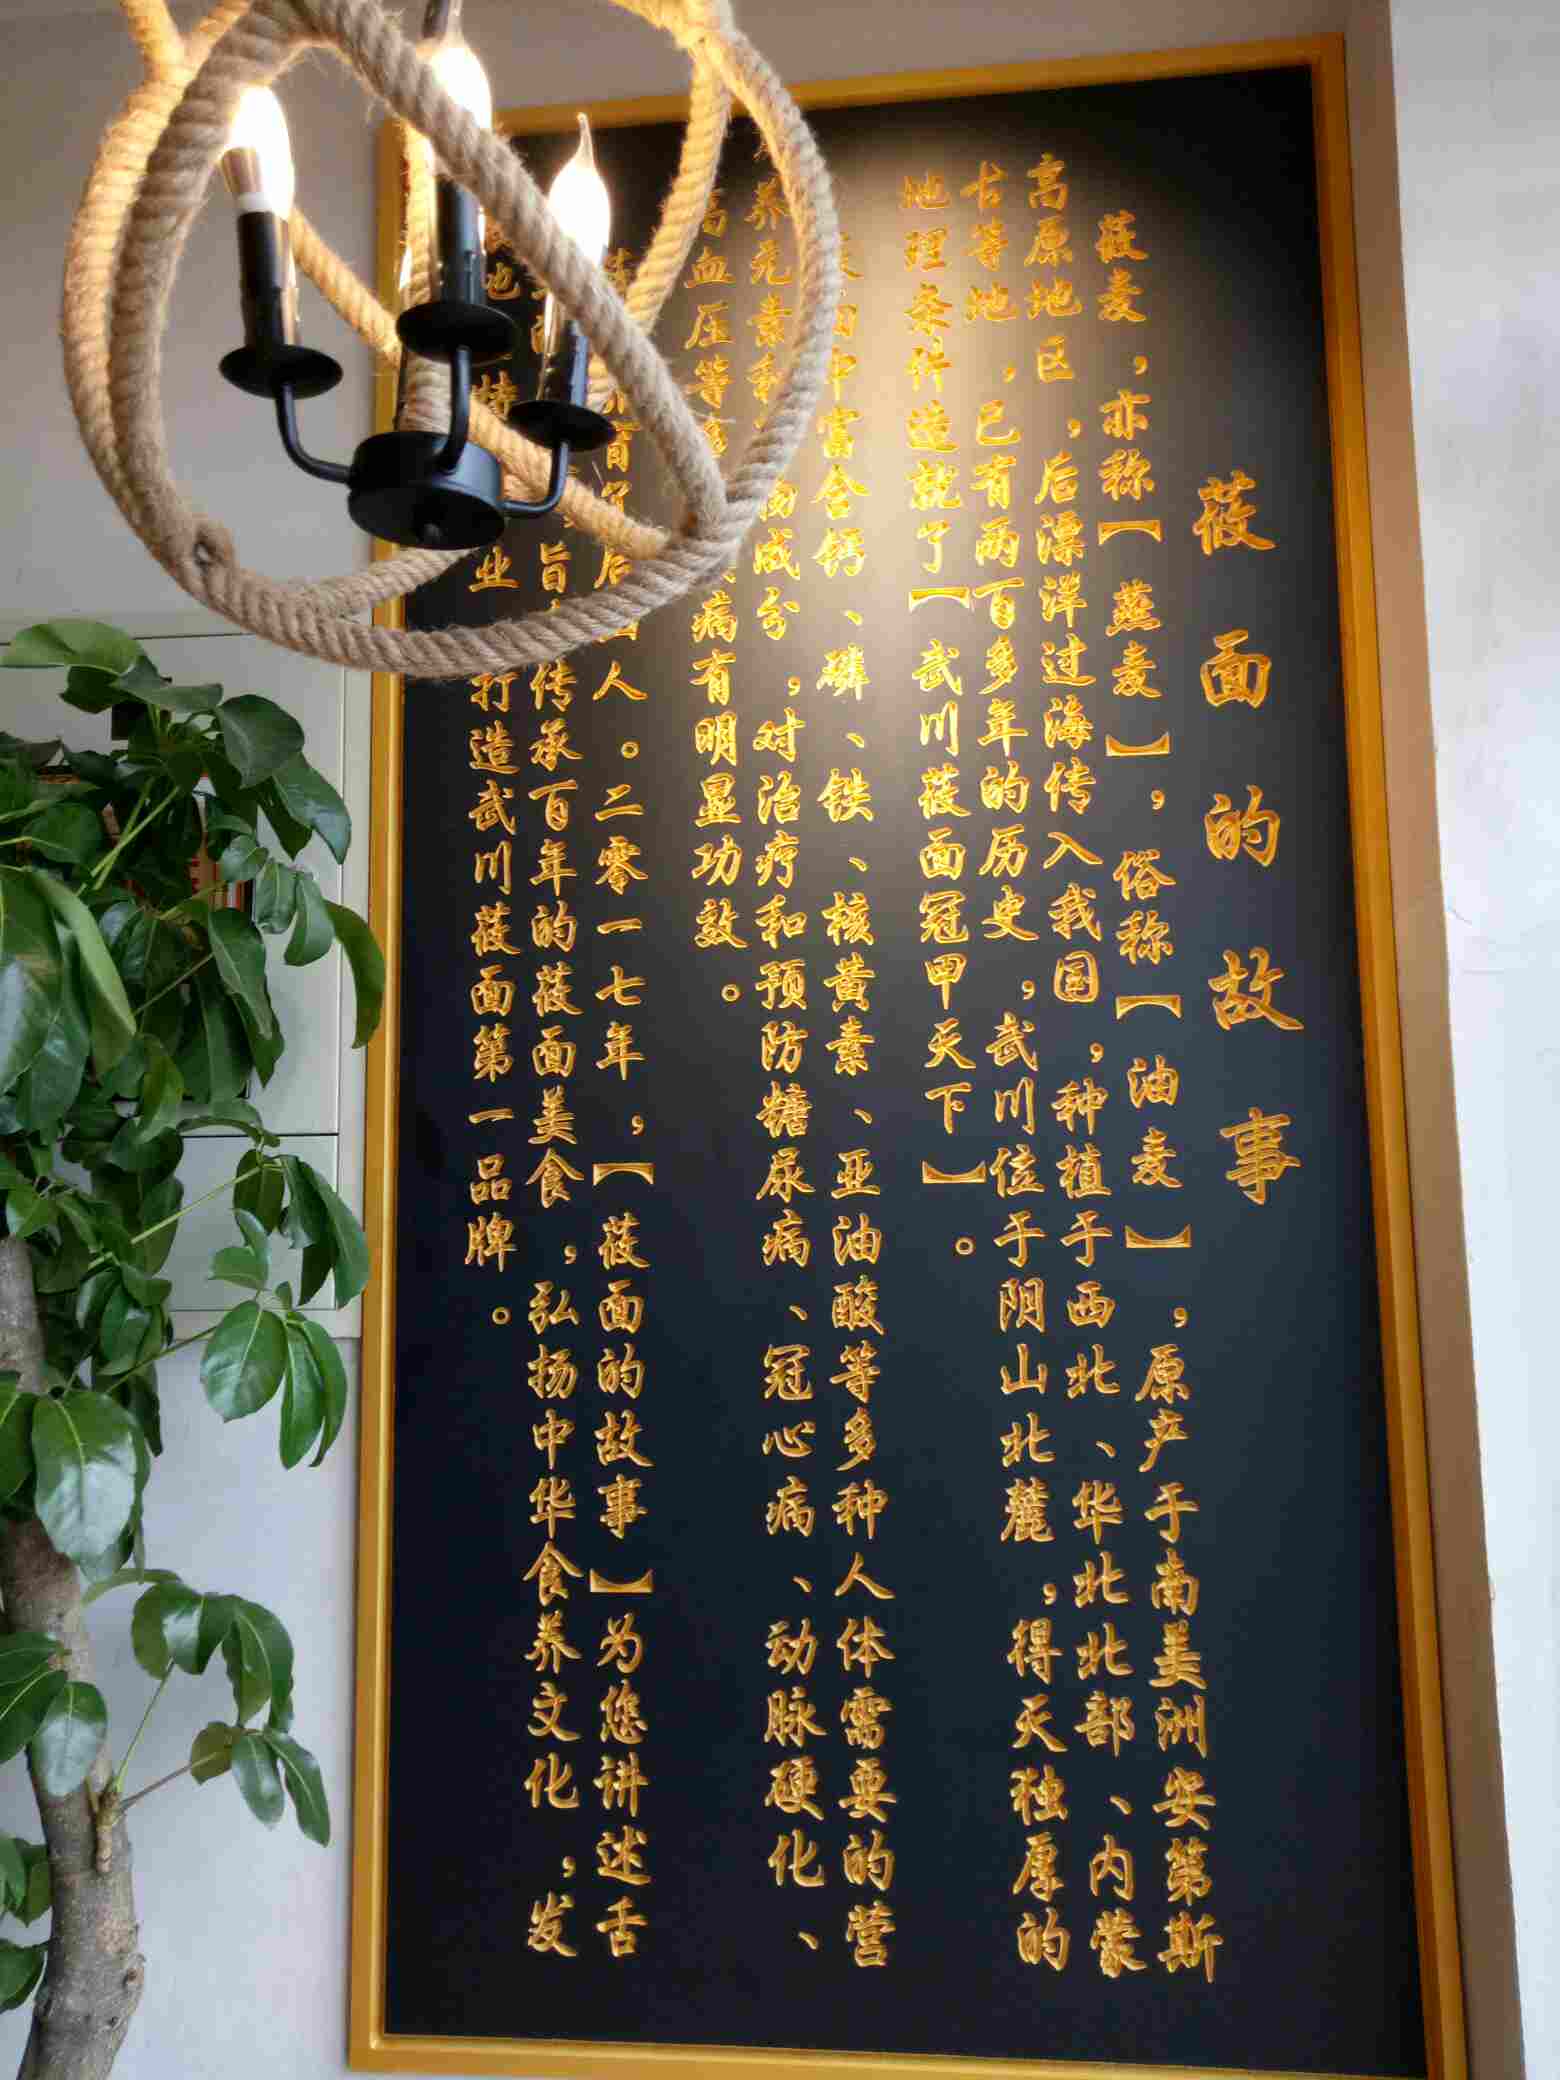 莜面的故事
莜麦，亦称【燕麦】，俗称【油麦】，原产于南美洲安第斯
高原地区，后漂洋过海传入我国，种植于西北、华北北部、内蒙
古等地，已有两百多年的历史，武川位于阴山北麓，得天独厚的
地理条件造就了【武川莜面冠甲天下】。
中富含钙、磷、铁、核黄素、亚油酸等多种人体需要的营
养元素和 成分，对治疗和预防糖尿病、冠心病、动脉硬化、
高血压等 病有明显功效。
人。二零一七年，【莜面的故事】为您讲述舌
旨 传承百年的莜面美食，弘扬中华食养文化，发
地 特 业 打造武川莜面第一品牌。